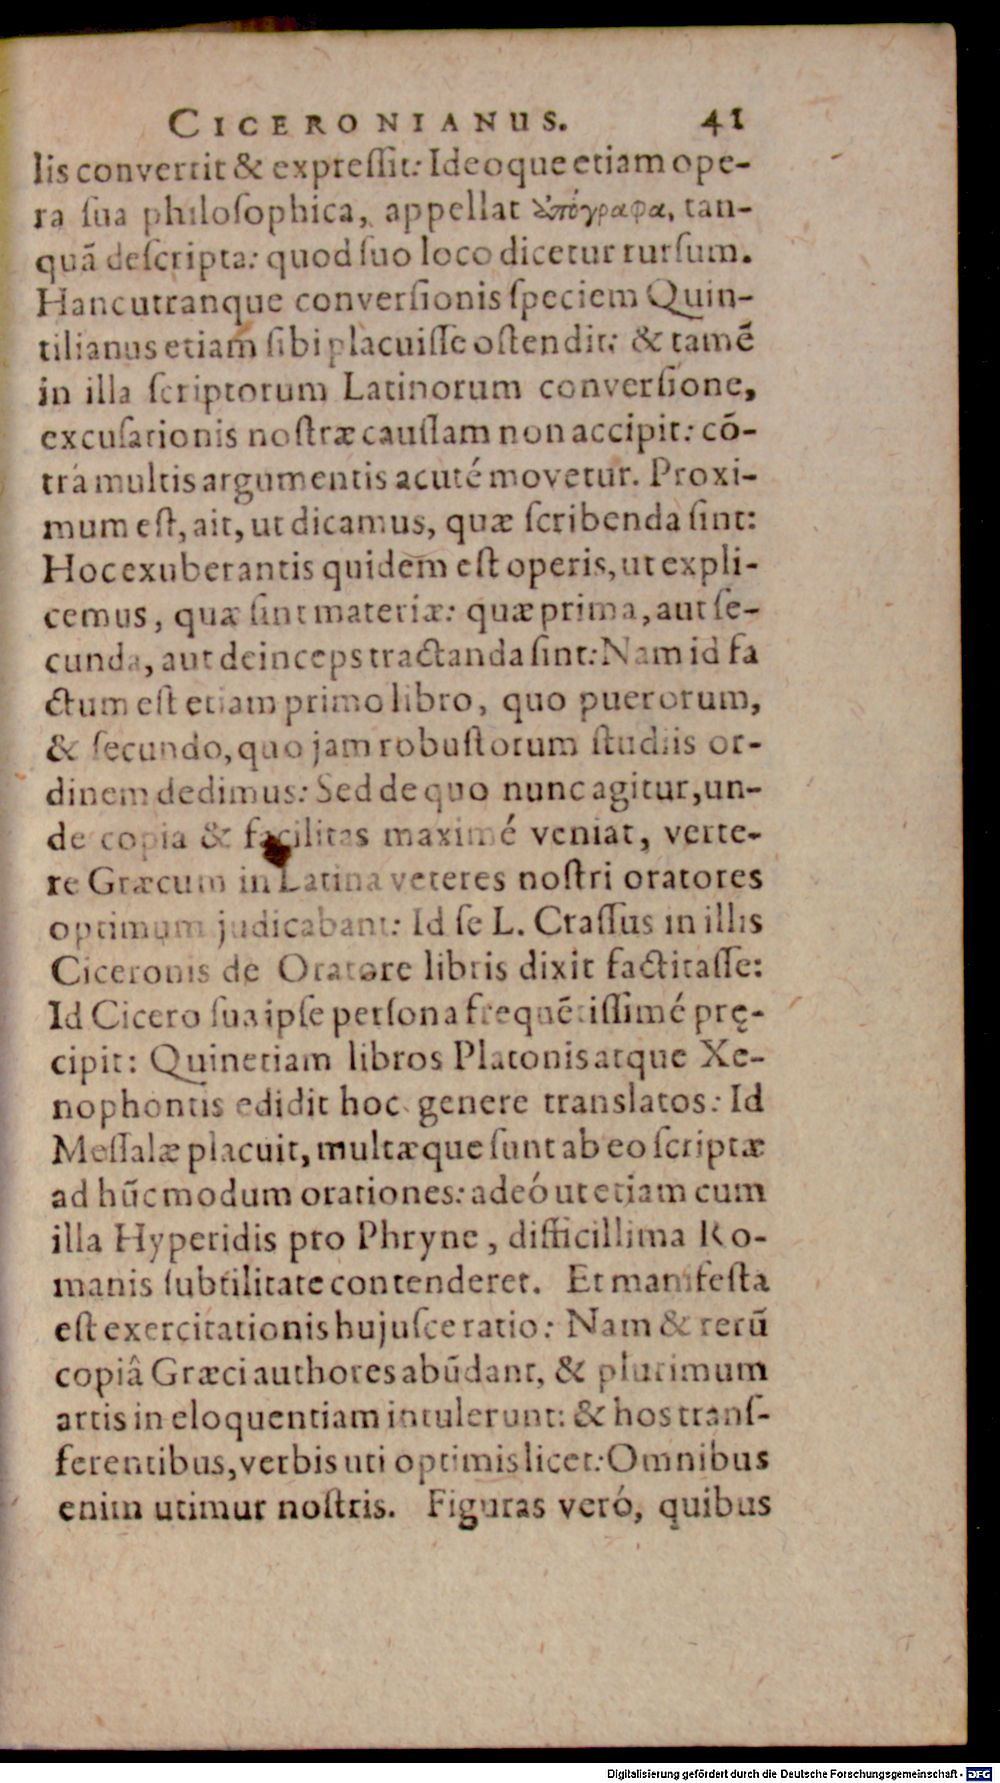 CICERONIANUS. 41
lis convertit & expreſſit: Ideoque etiam ope-
ra ſua philoſophica, appellat ὑπόγραφα, tan-
quā deſcripta: quod ſuo loco dicetur rurſum.
Hanc utranque converſionis ſpeciem Quin-
tilianus etiam ſibi placuiſſe oſtendit: & tamē
in illa ſcriptorum Latinorum converſione,
excuſationis noſtræ cauſſam non accipit: cō-
trà multis argumentis acuté movetur. Proxi-
mum eſt, ait, ut dicamus, quæ ſcribenda ſint:
Hoc exuberantis quidem eſt operis, ut expli-
cemus, quæ ſint materiæ: quæ prima, aut ſe-
cunda, aut deinceps tractanda ſint: Nam id fa
ctum eſt etiam primo libro, quo puerorum,
& ſecundo, quo jam robuſtorum ſtudiis or-
dinem dedimus: Sed de quo nunc agitur, un-
de copia & facilitas maximé veniat, verte-
re Græcum in Latina veteres noſtri oratores
optimum judicabant: Id ſe L. Craſſus in illis
Ciceronis de Oratore libris dixit factitaſſe:
Id Cicero ſua ipſe perſona frequētiſſimé prę-
cipit: Quinetiam libros Platonis atque Xe-
nophontis edidit hoc genere translatos: Id
Meſſalæ placuit, multæque ſunt ab eo ſcriptæ
ad hūc modum orationes: adeó ut etiam cum
illa Hyperidis pro Phryne, difficillima Ro-
manis ſubtilitate contenderet. Et manifeſta
eſt exercitationis hujuſce ratio: Nam & rerū
copiâ Græci authores abūdant, & plurimum
artis in eloquentiam intulerunt: & hos tranſ-
ferentibus, verbis uti optimis licet: Omnibus
enim utimur noſtris. Figuras veró, quibus
Digitalisierung gefördert durch die Deutsche Forschungsgemeinschaft - DFG